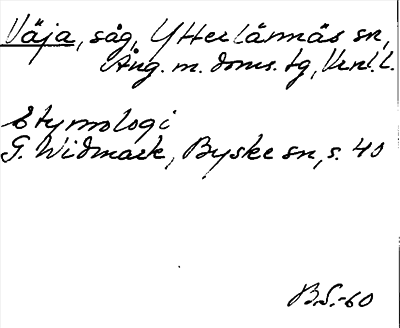 Väja, såg, Ytterlännäs sn,
Ång. m. doms. tg, Vnl. l.
Etymologi
G. Widmark, Byske sn, s. 40
B.S.-60